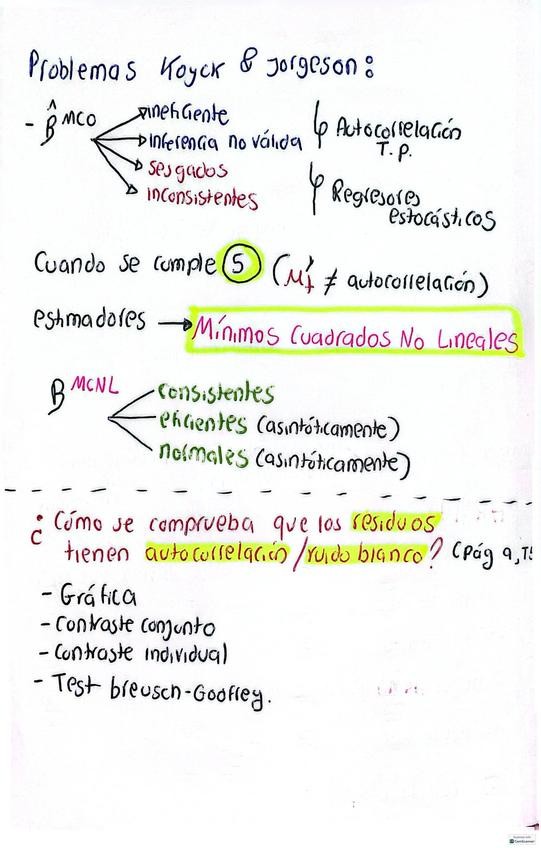 Problemas Koyck & Jorgeson:
- β̂ MCO
ineficiente
inferencia no válida
sesgados
inconsistentes
↳ Autocorrelación
T.P.
↳ Regresores
estocásticos
Cuando se cumple 5 (μ't ≠ autocorrelación)
estimadores → Mínimos Cuadrados No Lineales
β MCNL
consistentes
eficientes (asintóticamente)
normales (asintóticamente)
¿Cómo se comprueba que los residuos
tienen autocorrelación / ruido blanco? (pág 9,
- Gráfica
- Contraste conjunto
- Contraste individual
- Test breusch-Goofrey.
CamScanner